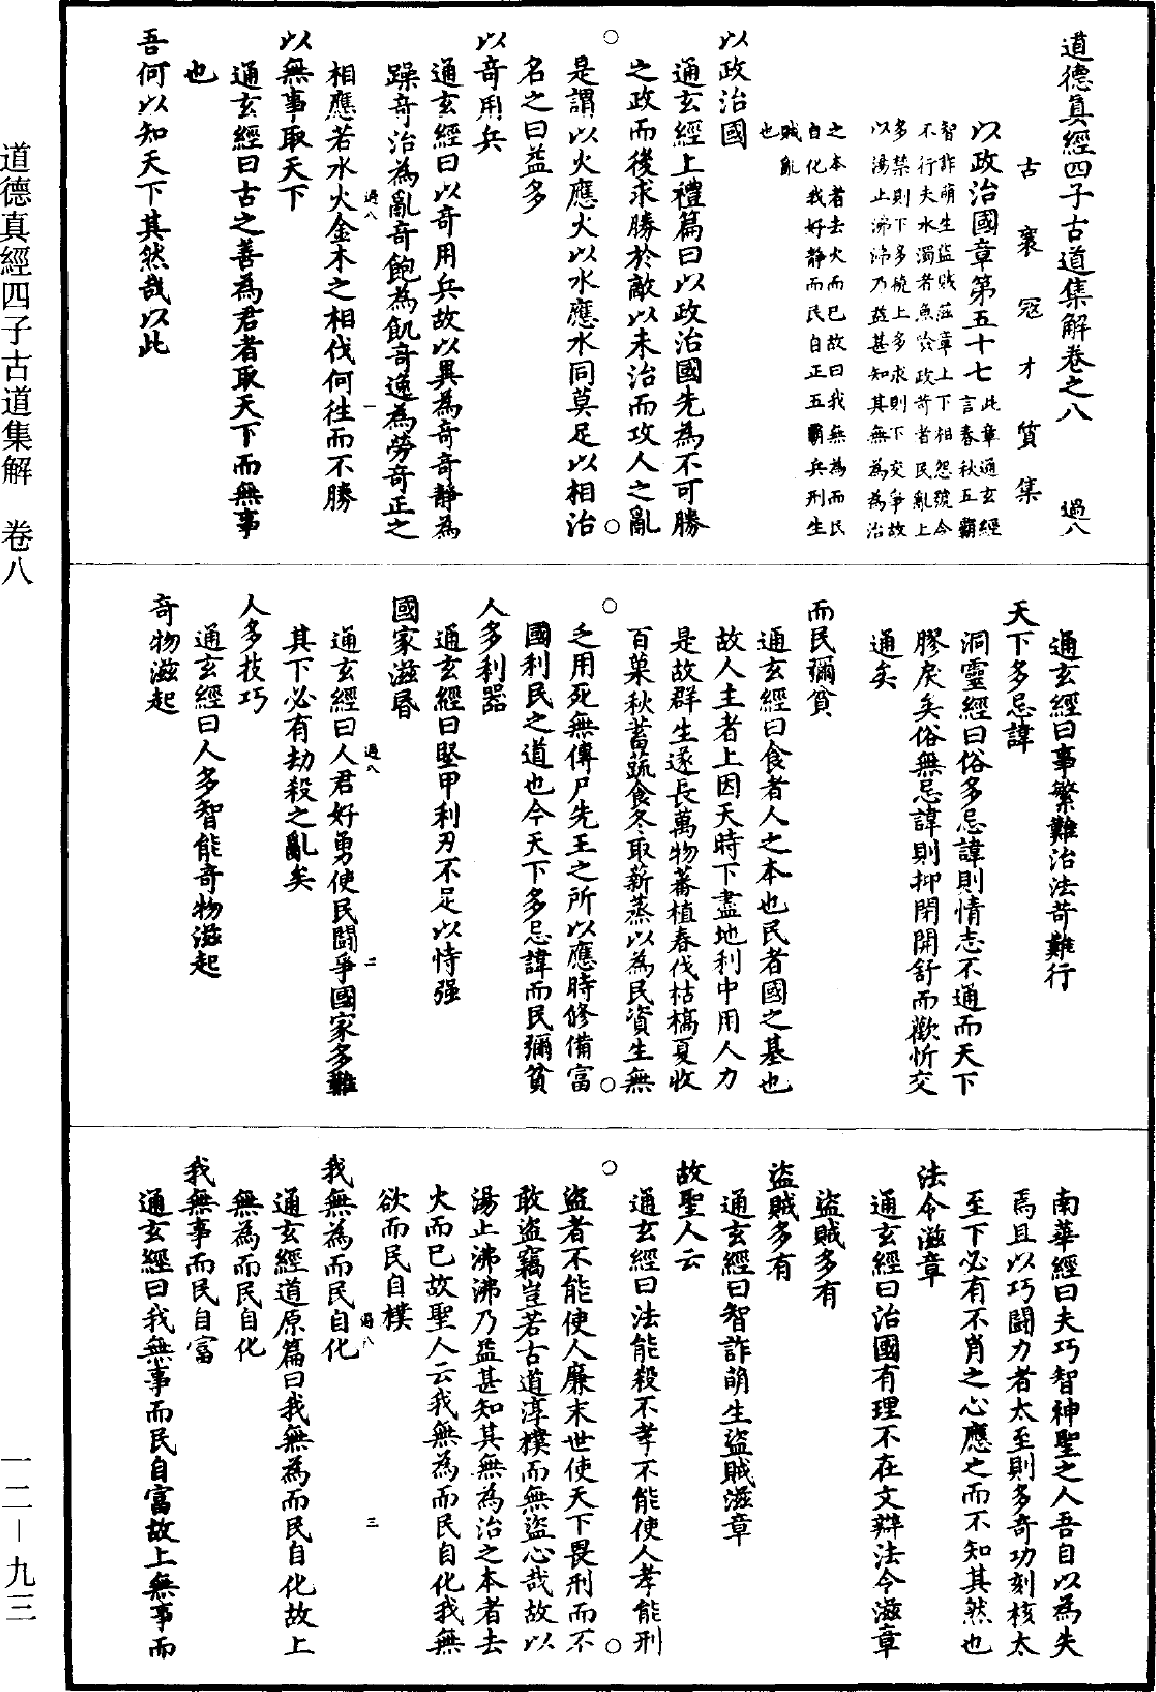 道德真經四子古道集解卷之八　過八
古襄寇才質集
以政治國章第五十七
此章通玄經
言春秋五霸
智詐萌生盜賊滋章上下相怨號令
不行夫水濁者魚噞政苛者民亂上
多禁則下多撓上多求則下交爭故
以湯止沸沸乃益甚知其無為為治
之本者去火而已故曰我無為而民
自化我好靜而民自正五霸兵刑生
賊亂
也
以政治國
通玄經上禮篇曰以政治國先為不可勝
之政而後求勝於敵以未治而攻人之亂
是謂以火應火以水應水同莫足以相治
名之曰益多
以奇用兵
通玄經曰以奇用兵故以異為奇奇靜為
躁奇治為亂奇飽為飢奇逸為勞奇正之
相應若水火金木之相伐何往而不勝
過八　一
以無事取天下
通玄經曰古之善為君者取天下而無事
也
吾何以知天下其然哉以此
通玄經曰事繁難治法苛難行
天下多忌諱
洞靈經曰俗多忌諱則情志不通而天下
膠戾矣俗無忌諱則抑閉開舒而歡忻交
通矣
而民彌貧
通玄經曰食者人之本也民者國之基也
故人主者上因天時下盡地利中用人力
是故群生遂長萬物蕃植春伐枯槁夏收
百菓秋蓄蔬食冬取薪蒸以為民資生無
乏用死無傳尸先王之所以應時修備富
國利民之道也今天下多忌諱而民彌貧
人多利器
通玄經曰堅甲利刃不足以恃强
國家滋昬
過八　二
通玄經曰人君好勇使民鬪爭國家多難
其下必有劫殺之亂矣
人多技巧
通玄經曰人多智能奇物滋起
奇物滋起
南華經曰夫巧智神聖之人吾自以為失
焉且以巧鬪力者太至則多奇功刻核太
至下必有不肖之心應之而不知其然也
法令滋章
通玄經曰治國有理不在文辯法令滋章
盜賊多有
盜賊多有
通玄經曰智詐萌生盜賊滋章
故聖人云
通玄經曰法能殺不孝不能使人孝能刑
盜者不能使人廉末世使天下畏刑而不
敢盜竊豈若古道淳樸而無盜心哉故以
湯止沸沸乃益甚知其無為治之本者去
火而已故聖人云我無為而民自化我無
欲而民自樸
過八　三
我無為而民自化
通玄經道原篇曰我無為而民自化故上
無為而民自化
我無事而民自富
通玄經曰我無事而民自富故上無事而
道德真經四子古道集解　卷八
一二－九三